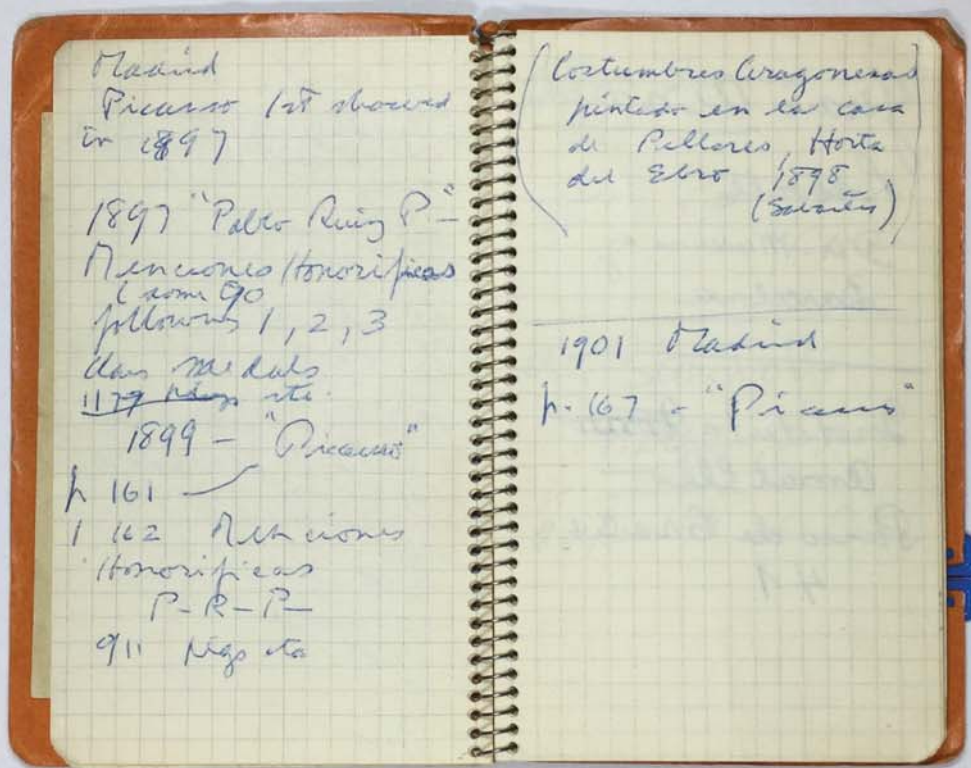 Madrid
Picasso 1st showed
in 1897
1897 "Pablo Ruiz P—"
Menciones Honorificas
(some 90
following 1, 2, 3
class medals
1177 ptgs etc.
1899 — "Picasso"
p 161
1 162 Menciones
Honorificas
P- R- P-
911 ptgs etc
(Costumbres Aragonesas
pintado en la casa
de Pallares, Horta
del Ebro 1898
(Sabartés))
1901 Madrid
p. 167 - "Picasso"